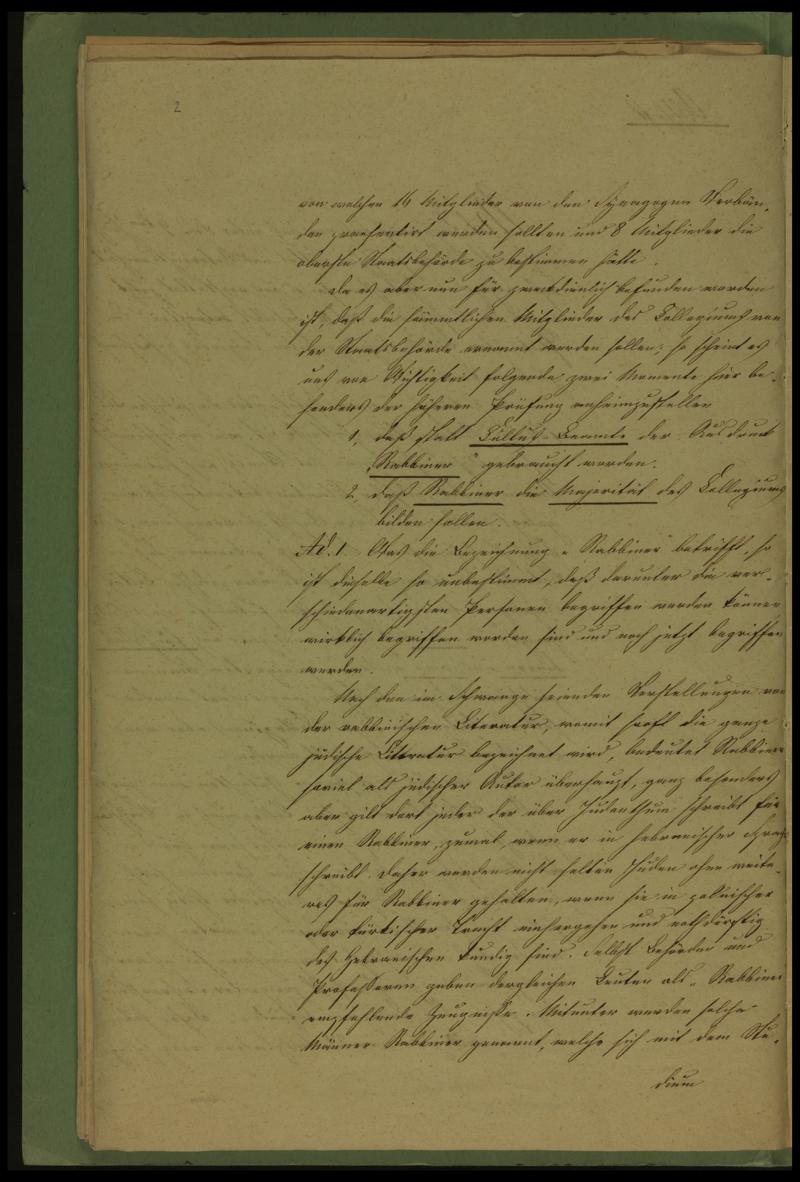 2
von welchen 16 Mitglieder von den Synagogen Verbän-
den praesentirt werden sollten und 8 Mitglieder die
oberste Staatsbehörde zu bestimmen hätte.
Da es aber nun für zweckdienlich befunden worden
ist, daß die sämmtlichen Mitglieder des Collegiums von
der Staatsbehörde ernannt werden sollen; so scheint es
uns von Wichtigkeit folgende zwei Momente hier be-
sonders der höheren Prüfung anheimzustellen
1, daß statt Cultus-Beamte der Ausdruck
„Rabbiner" gebraucht werden.
2, daß Rabbiner die Majorität des Collegiums
bilden sollen.
Ad. 1. Was die Bezeichnung „Rabbiner" betrifft, so
ist dieselbe so unbestimmt, daß darunter die ver-
schiedenartigsten Personen begriffen werden können
wirklich begriffen worden sind und noch jetzt begriffen
werden.
Nach den im Schwange seienden Vorstellungen von
der rabbinischen Literatur, womit so oft die ganze
jüdische Literatur bezeichnet wird, bedeutet Rabbiner
soviel als jüdischer Autor überhaupt, ganz besonders
aber gilt dort jeder der über Judenthum schreibt für
einen Rabbiner, zumal wenn er in hebraeischer Sprache
schreibt. Daher werden nicht selten Juden ohne weite-
res für Rabbiner gehalten, wenn sie in polnischer
oder türkischer Tracht einhergehen und nothdürftig
des Hebraeischen kundig sind. Selbst Behörden und
Professoren gaben dergleichen Leuten als „Rabbiner
empfehlende Zeugnisse. Mitunter werden solche
Männer Rabbiner genannt, welche sich mit dem Stu-
dium